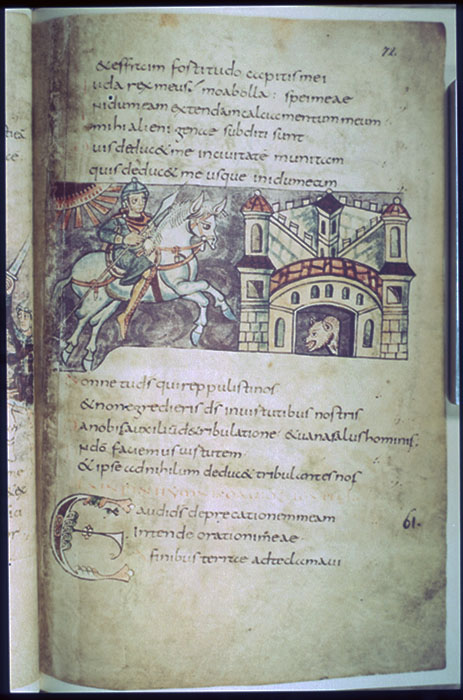 72.
& effrem fortitudo capitis mei
iuda rex meus, moab olla spei meae
idumeam extendam calciamentum meum
mihi alienigenae subditi sunt
uis deduc& me in ciuitate munitam
quis deduc& me usque in idumeam
onne tu ds qui reppulisti nos
& non egredieris ds in uirtutibus nostris
a nobis auxiliū de tribulatione & uana salus hominis.
n dō faciemus uirtutem
& ipse ad nihilum deduc& tribulantes nos
E xaudi ds deprecationem meam 61.
Intende orationi meae
finibus terrae ad te clamaui